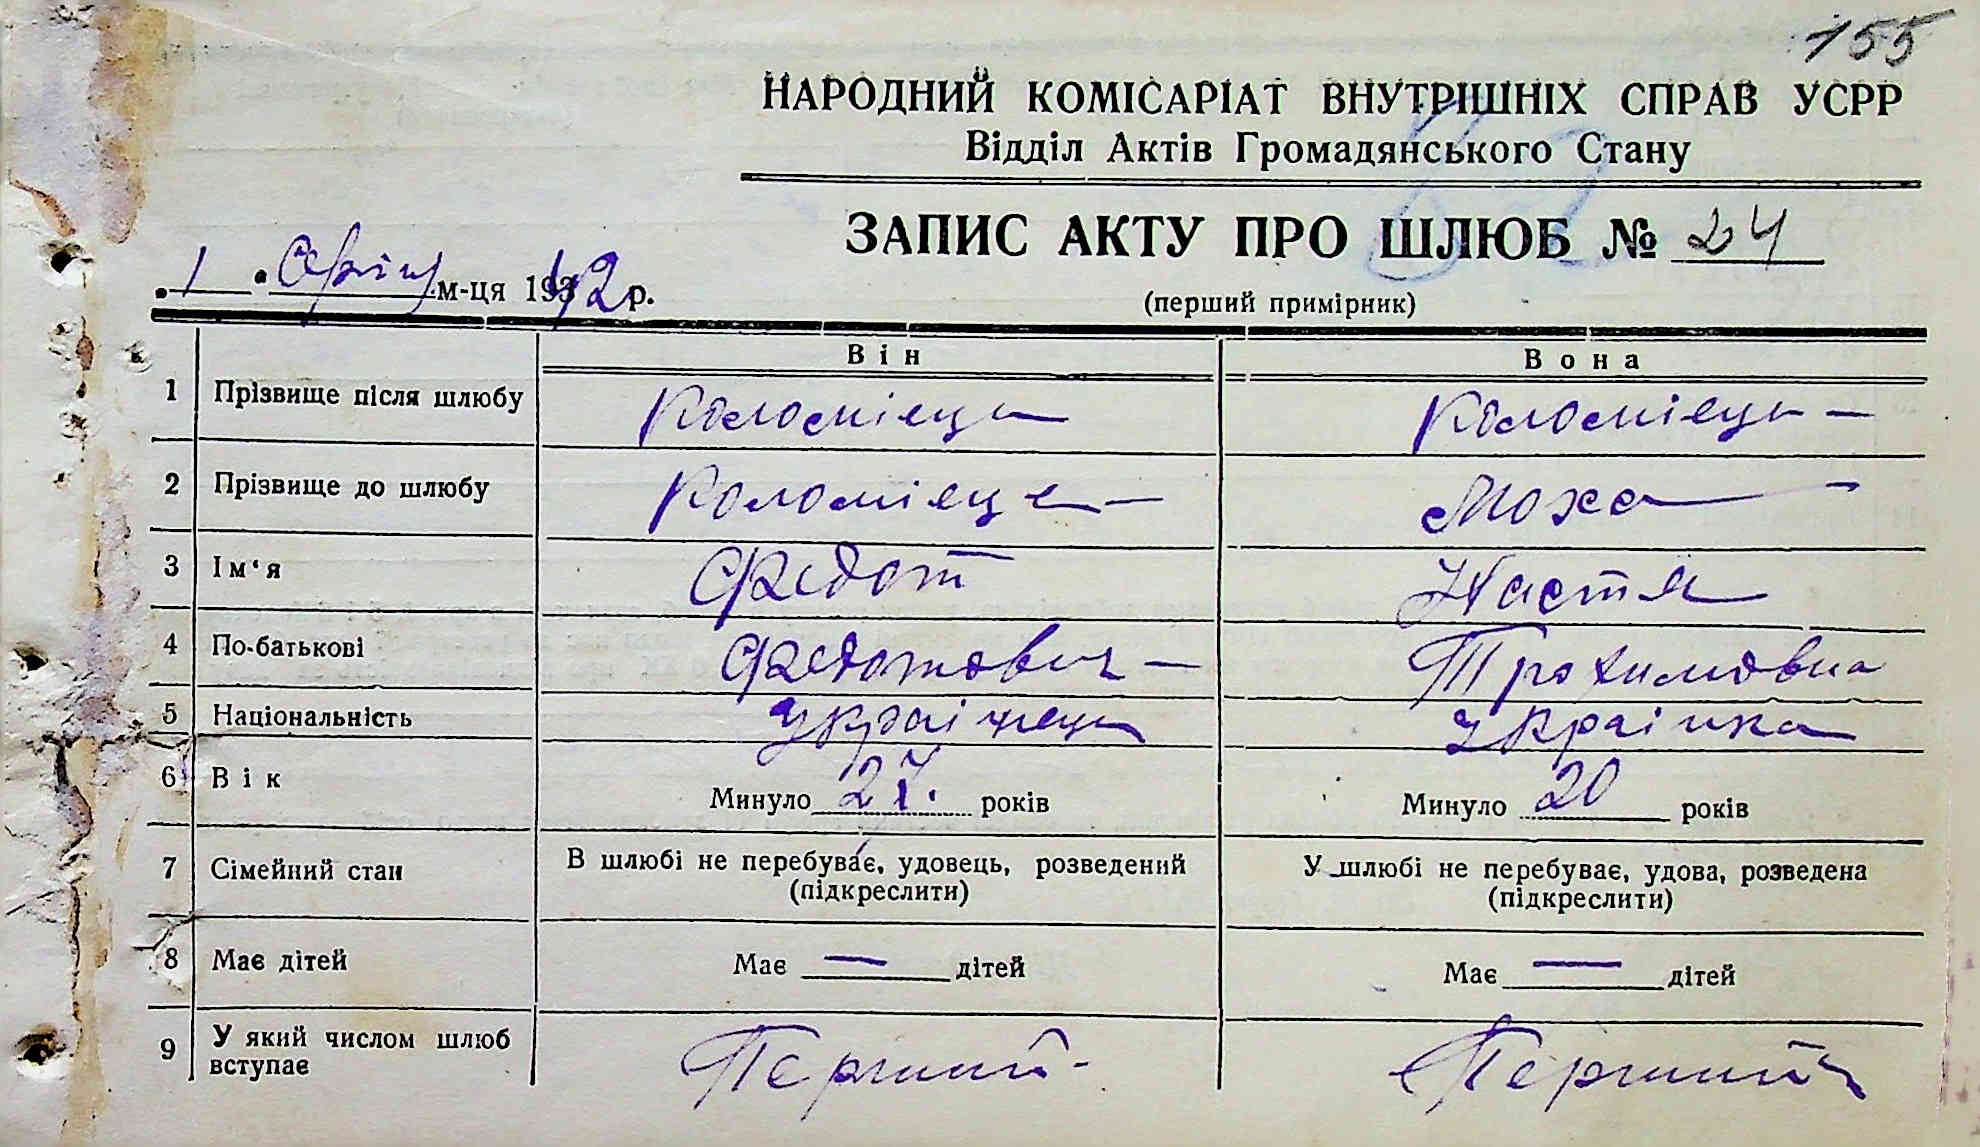 155
НАРОДНИЙ КОМІСАРІАТ ВНУТРІШНІХ СПРАВ УСРР
Відділ Актів Громадянського Стану
ЗАПИС АКТУ ПРО ШЛЮБ № 24
(перший примірник)
1 м-ця 1942 р.
Він Вона
1 Прізвище після шлюбу Коломієць Коломієць
2 Прізвище до шлюбу Коломієць
3 Ім'я Федот Настя
4 По-батькові Федотович Трохимовна
5 Національність Українець Українка
6 Вік Минуло 27. років Минуло 20 років
7 Сімейний стан В шлюбі не перебуває, удовець, розведений У шлюбі не перебуває, удова, розведена
(підкреслити) (підкреслити)
8 Має дітей Має — дітей Має — дітей
9 У який числом шлюб вступає Перший Перший